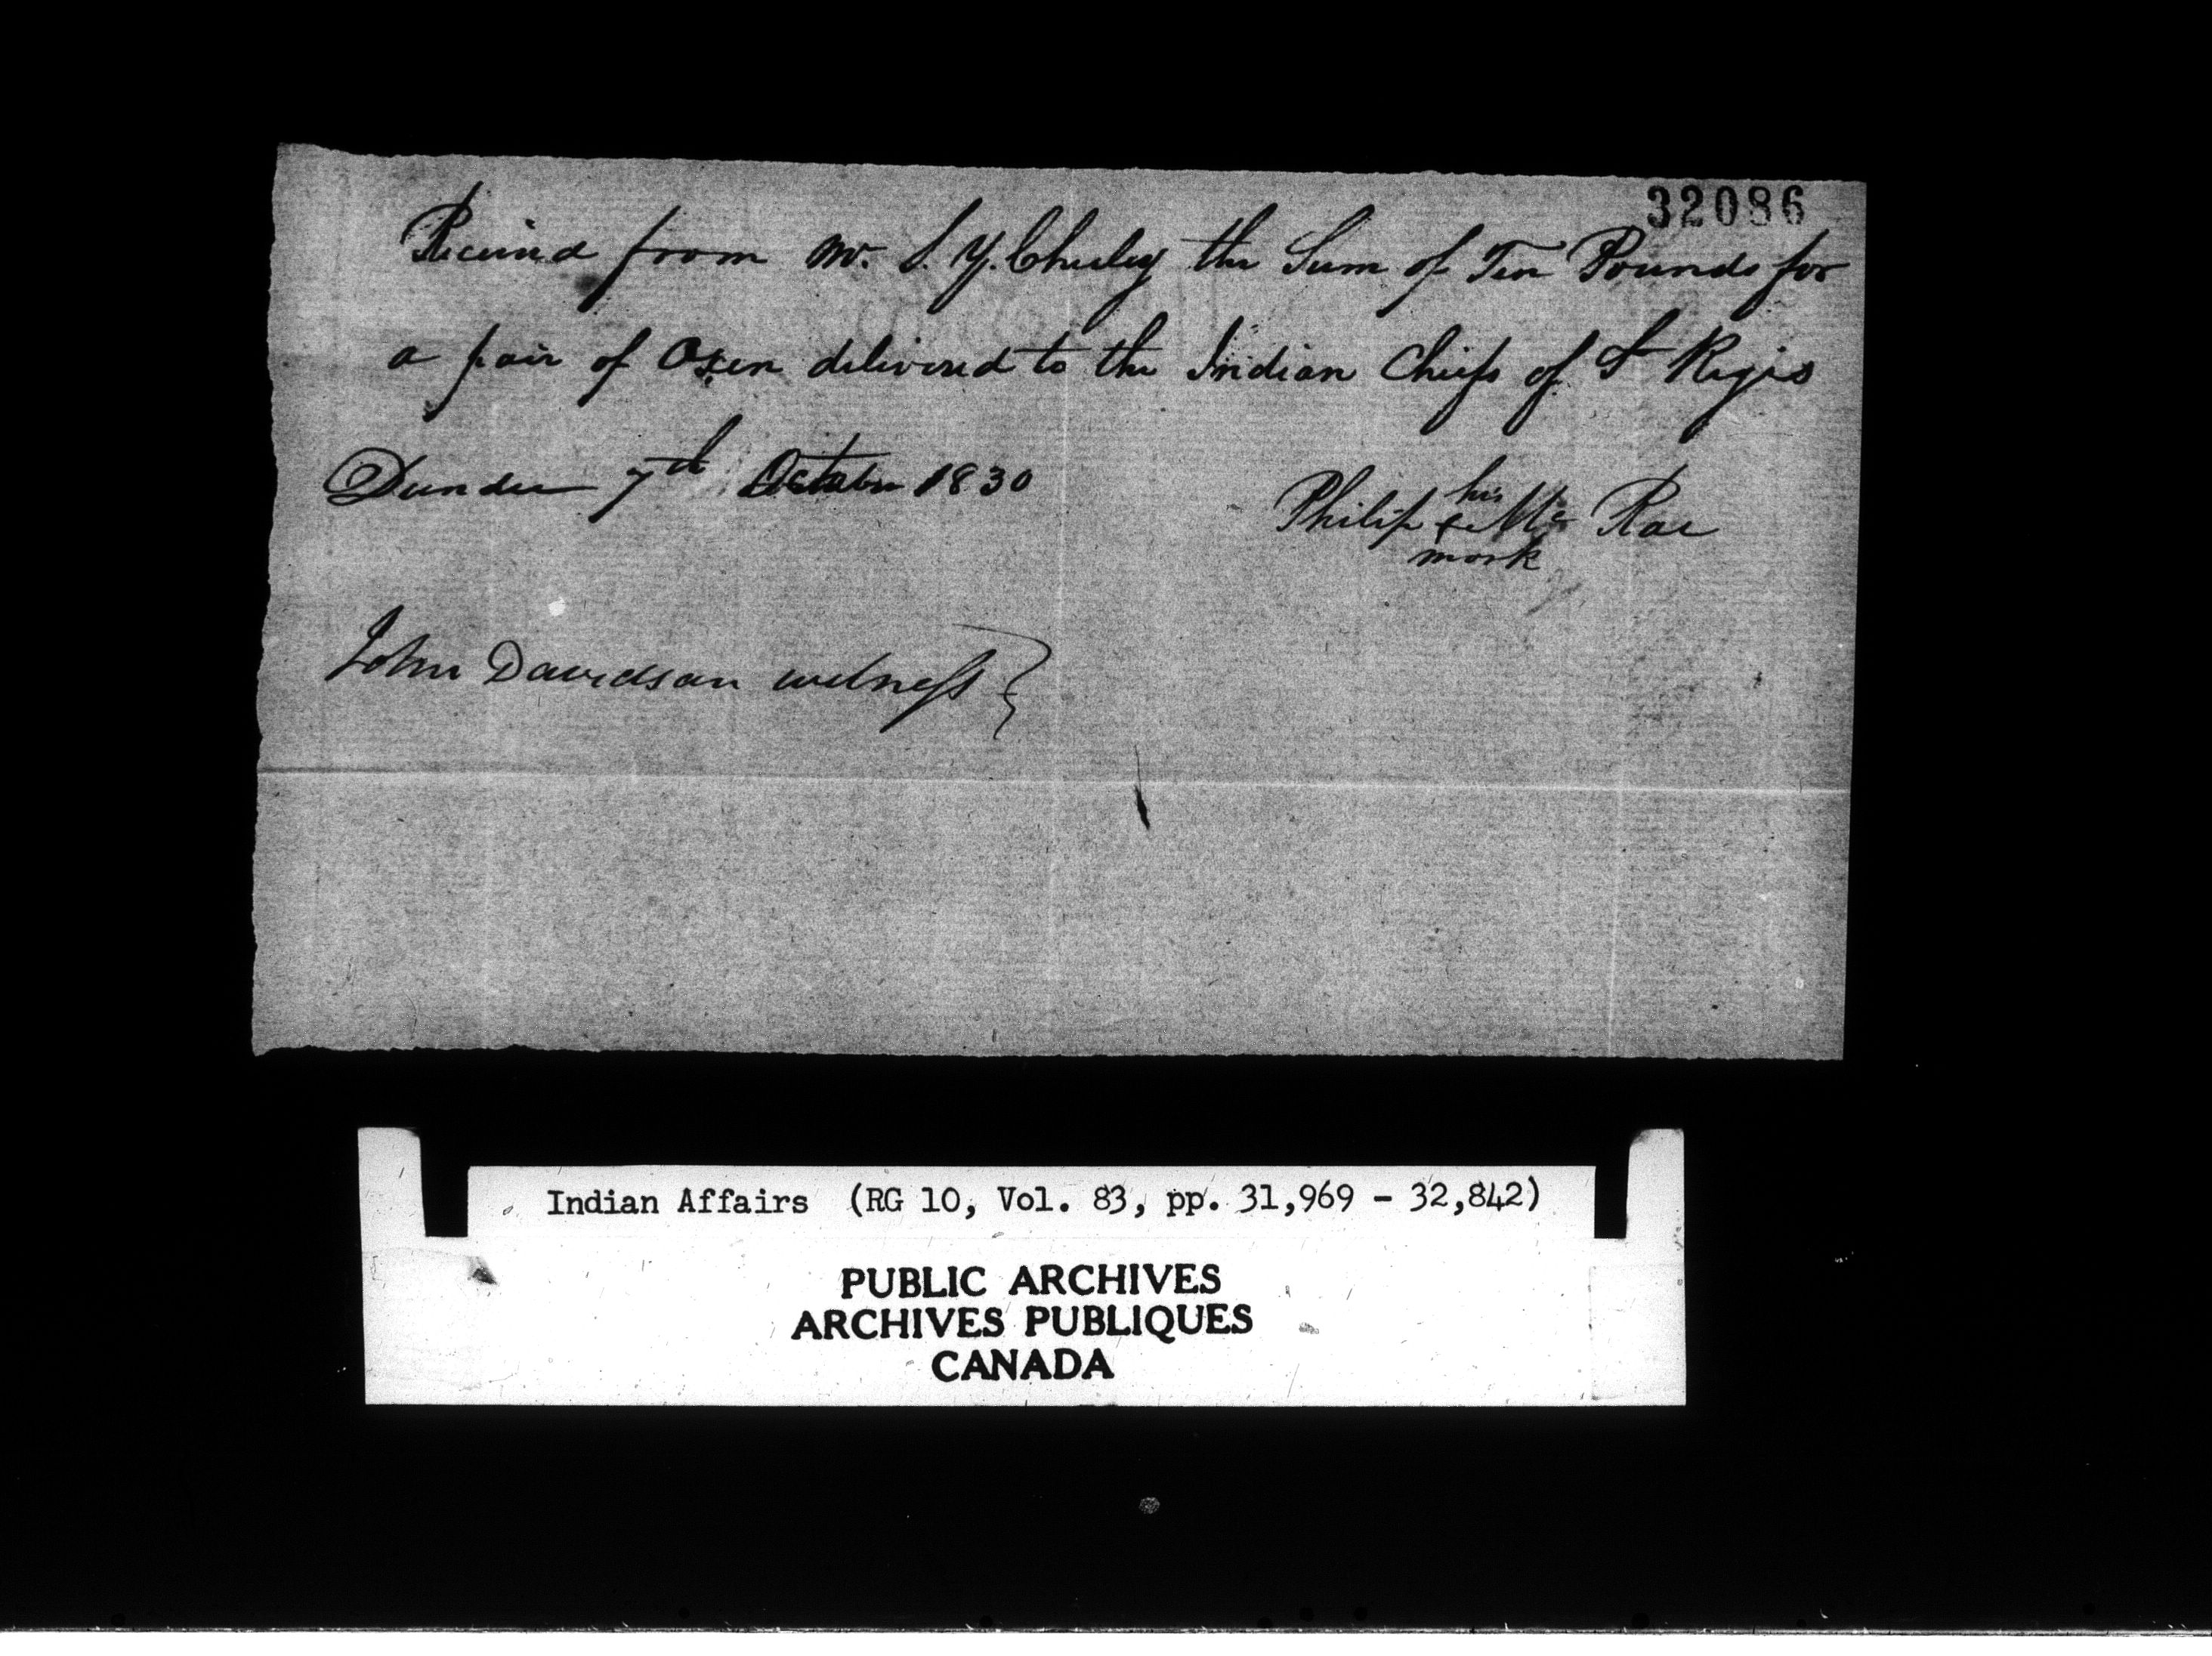 32086
Received from Mr. S. Y. Chesley the Sum of Ten Pounds for
a pair of Oxen delivered to the Indian Chiefs of St Regis
Dundee 7th October 1830
his
Philip + Mc Rae
mark
John Davidson witness
Indian Affairs (RG 10, Vol. 83, pp. 31,969 - 32,842)
PUBLIC ARCHIVES
ARCHIVES PUBLIQUES
CANADA